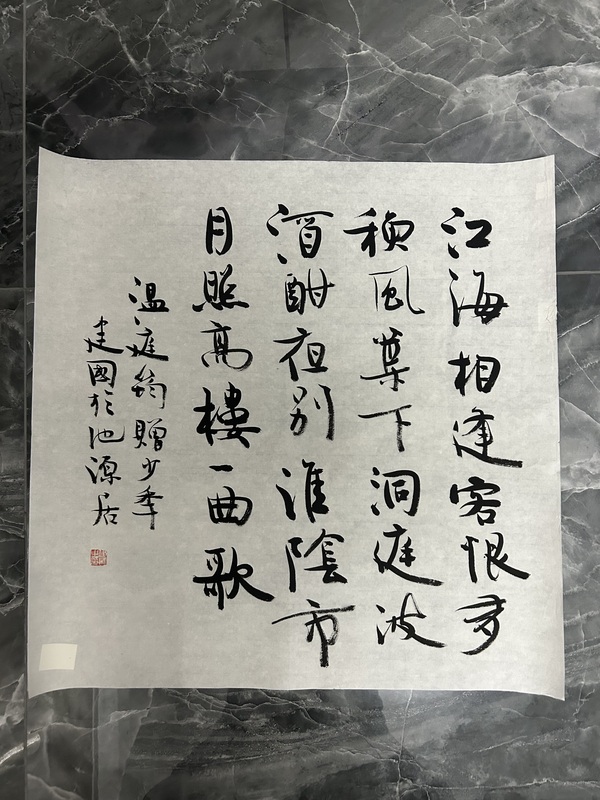 江海相逢客恨多
秋風葉下洞庭波
酒酣夜别淮陰市
月照高樓一曲歌
温庭筠贈少秊
建國於池源居